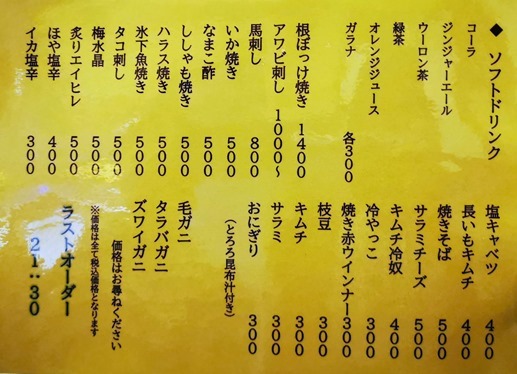 ◆ ソフトドリンク
コーラ
ジンジャーエール
ウーロン茶
緑茶
オレンジジュース
ガラナ
各300
根ぼっけ焼き 1400
アワビ刺し 1000~
馬刺し 800
いか焼き 500
なまこ酢 500
ししゃも焼き 500
ハラス焼き 500
氷下魚焼き 500
タコ刺し 500
梅水晶 500
炙りエイヒレ 500
ほや塩辛 400
イカ塩辛 300
塩キャベツ 400
長いもキムチ 400
焼きそば 500
サラミチーズ 500
キムチ冷奴 400
冷やっこ 300
焼き赤ウインナー 300
枝豆 300
キムチ 300
サラミ 300
おにぎり 300
(とろろ昆布汁付き)
毛ガニ
タラバガニ
ズワイガニ
価格はお尋ねください
※価格は全て税込価格となります
ラストオーダー
21:30